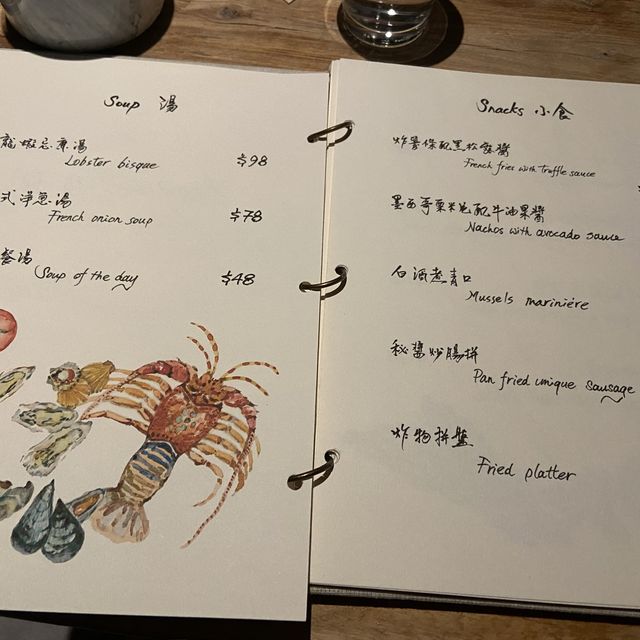 Soup 湯
龍蝦忌廉湯
Lobster bisque $98
式洋葱湯
French onion soup $78
餐湯
Soup of the day $48
Snacks 小食
炸薯條配黑松露醬
French fries with truffle sauce
墨西哥粟米片配牛油果醬
Nachos with avocado sauce
白酒煮青口
Mussels marinière
秘醬炒腸拼
Pan fried unique sausage
炸物拼盤
Fried platter